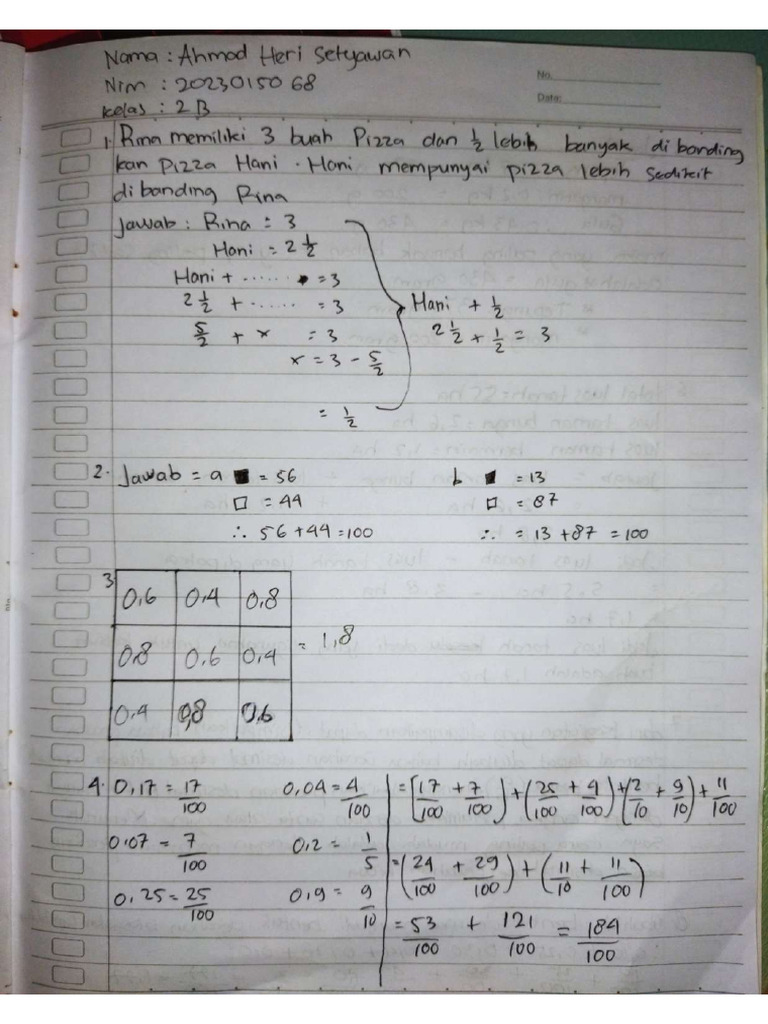 Nama : Ahmad Heri Setyawan
Nim : 2023015068
Kelas : 2B
No.
Date:
1. Rina memiliki 3 buah Pizza dan 1/2 lebih banyak di banding
kan Pizza Hani . Hani mempunyai pizza lebih sedikit
di banding Rina
Jawab : Rina = 3
Hani = 2 1/2
Hani + ...... = 3
2 1/2 + ...... = 3
5/2 + x = 3
x = 3 - 5/2
= 1/2
Hani + 1/2
2 1/2 + 1/2 = 3
2. Jawab = a ■ = 56
□ = 44
∴ 56 + 44 = 100
b ■ = 13
□ = 87
∴ = 13 + 87 = 100
3
0,6 0,4 0,8
0,8 0,6 0,4 = 1,8
0,4 0,8 0,6
4. 0,17 = 17/100 0,04 = 4/100
0,07 = 7/100 0,2 = 1/5
0,25 = 25/100 0,9 = 9/10
= [17/100 + 7/100) + (25/100 + 4/100) + (2/10 + 9/10) + 11/100
= (24/100 + 29/100) + (11/10 + 11/100)
= 53/100 + 121/100 = 184/100